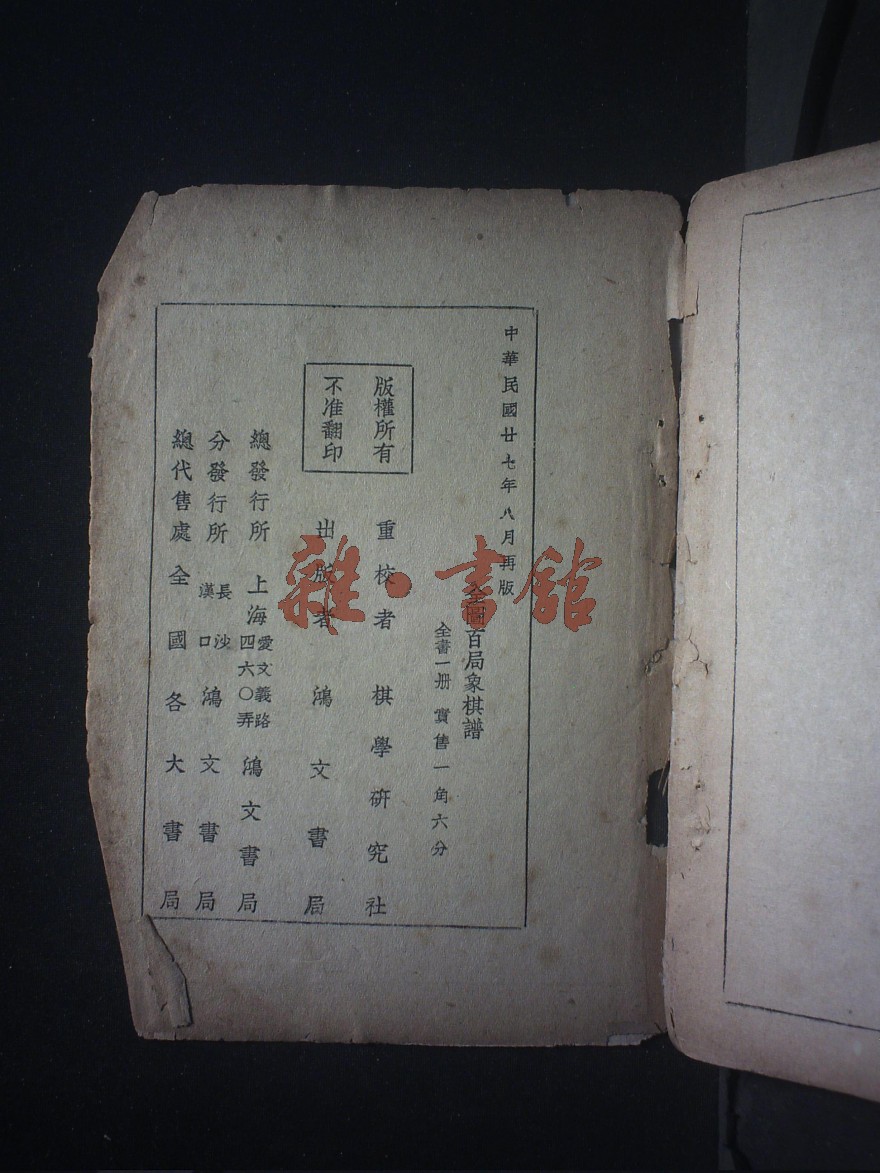 中華民國廿七年八月再版
全圖百局象棋譜
全書一册 實售一角六分
版權所有
不准翻印
重校者 棋學研究社
出版者 鴻文書局
總發行所 上海愛文義路四六〇弄 鴻文書局
分發行所 長沙漢口 鴻文書局
總代售處 全國各大書局
雜·書館